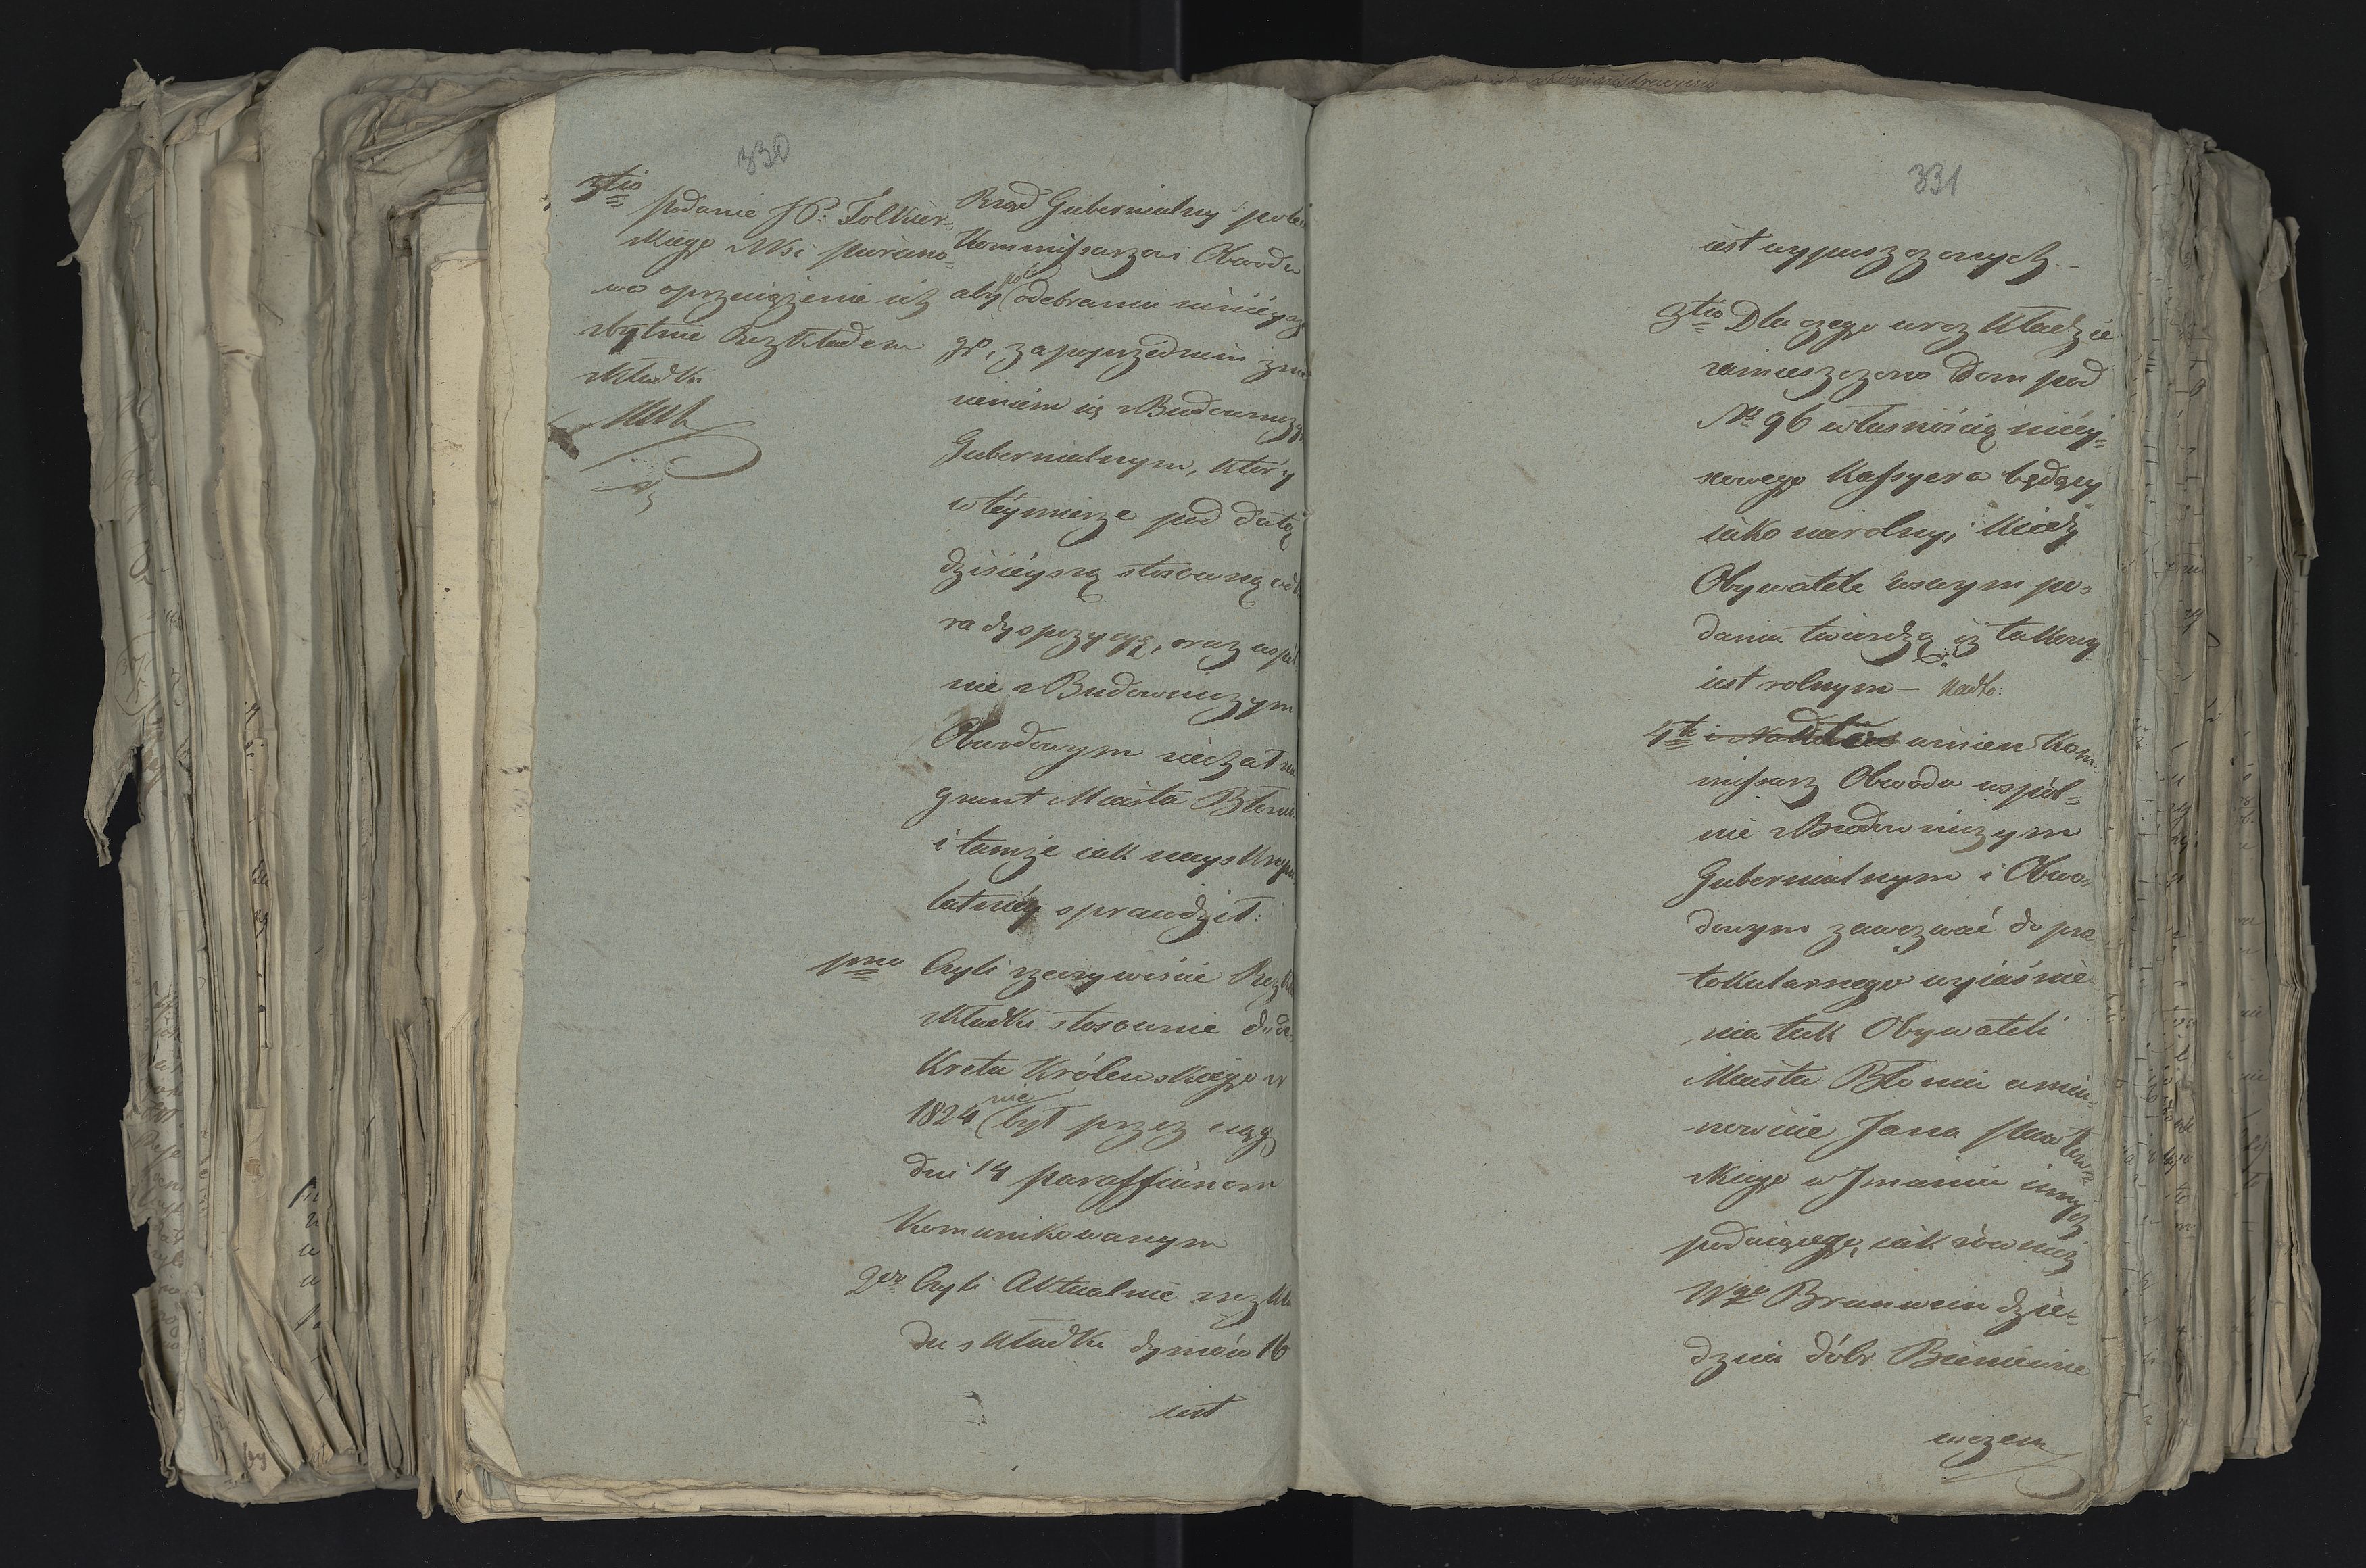 330
3tio
podanie JP: Tolkier-
skiego
o przeciążenie ich
zbytnie Rozkładem
składki
Rząd Gubernialny pole
Kommissarzowi Obwodu
aby po odebraniu ninieysze
go, za poprzedniem znie
sieniem się z Budowniczy
Gubernialnym, który
w téymierze pod datą
dzisieyszą stosowną odb
ra dyspozycyę, oraz wspól
nie z Budowniczym
Obwodowym ziechał na
grunt Miasta Błonia
i tamże iak nayskrupu
latniéy sprawdził:
pmo Czyli rzeczywiście Rozkła
składki stosownie do de
kretu Królewskiego z r
1824 nie był przez ciąg
dni 14 paraffianom
Komunikowanym
2do Czyli Aktualnie z rozkła
du składki dymów 16
iest
331
iest wypuszczonych.
3tio Dla czego w rozkładzie
zamieszczono Dom pod
No 96 własnością miéy-
scowego Kassyera będący
iako nierolny, kiedy
Obywatele w swym po-
daniu twierdzą iż takowy
iest rolnym — Nadto:
4to winien Kom-
missarz Obwodu wspól-
nie z Budowniczym
Gubernialnym i Obwo-
dowym zawezwać do pro
tokularnego wyiaśnie-
nia tak Obywateli
Miasta Błonia a mia-
nowicie Jana
skiego w Imieniu innych
podaiącego, iak również
Wgo Brunwein dzie-
dzica dóbr Bieniewice
wczem